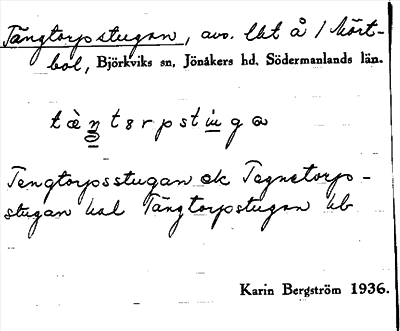 Tängtorpsstugan, avs. lht å 1 Mört-
bol, Björkviks sn, Jönåkers hd, Södermanlands län.
Tengtorpsstugan ek Tegnetorps-
stugan kal Tängtorpstugan kb
Karin Bergström 1936.